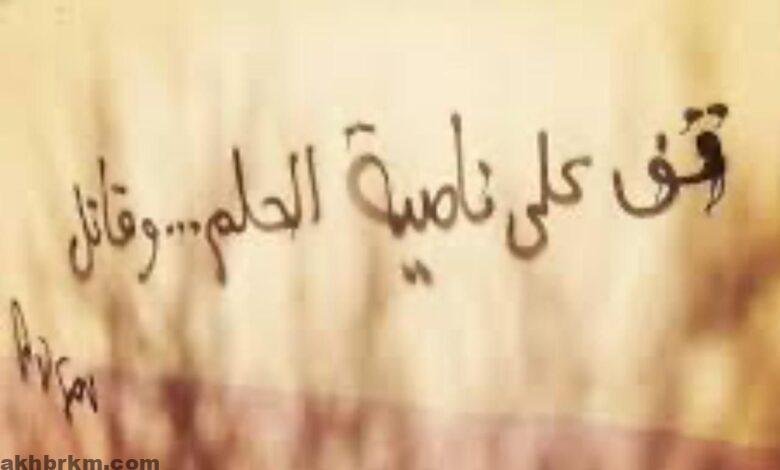 قف على ناصية الحلم...وقاتل
akhbrkm.com